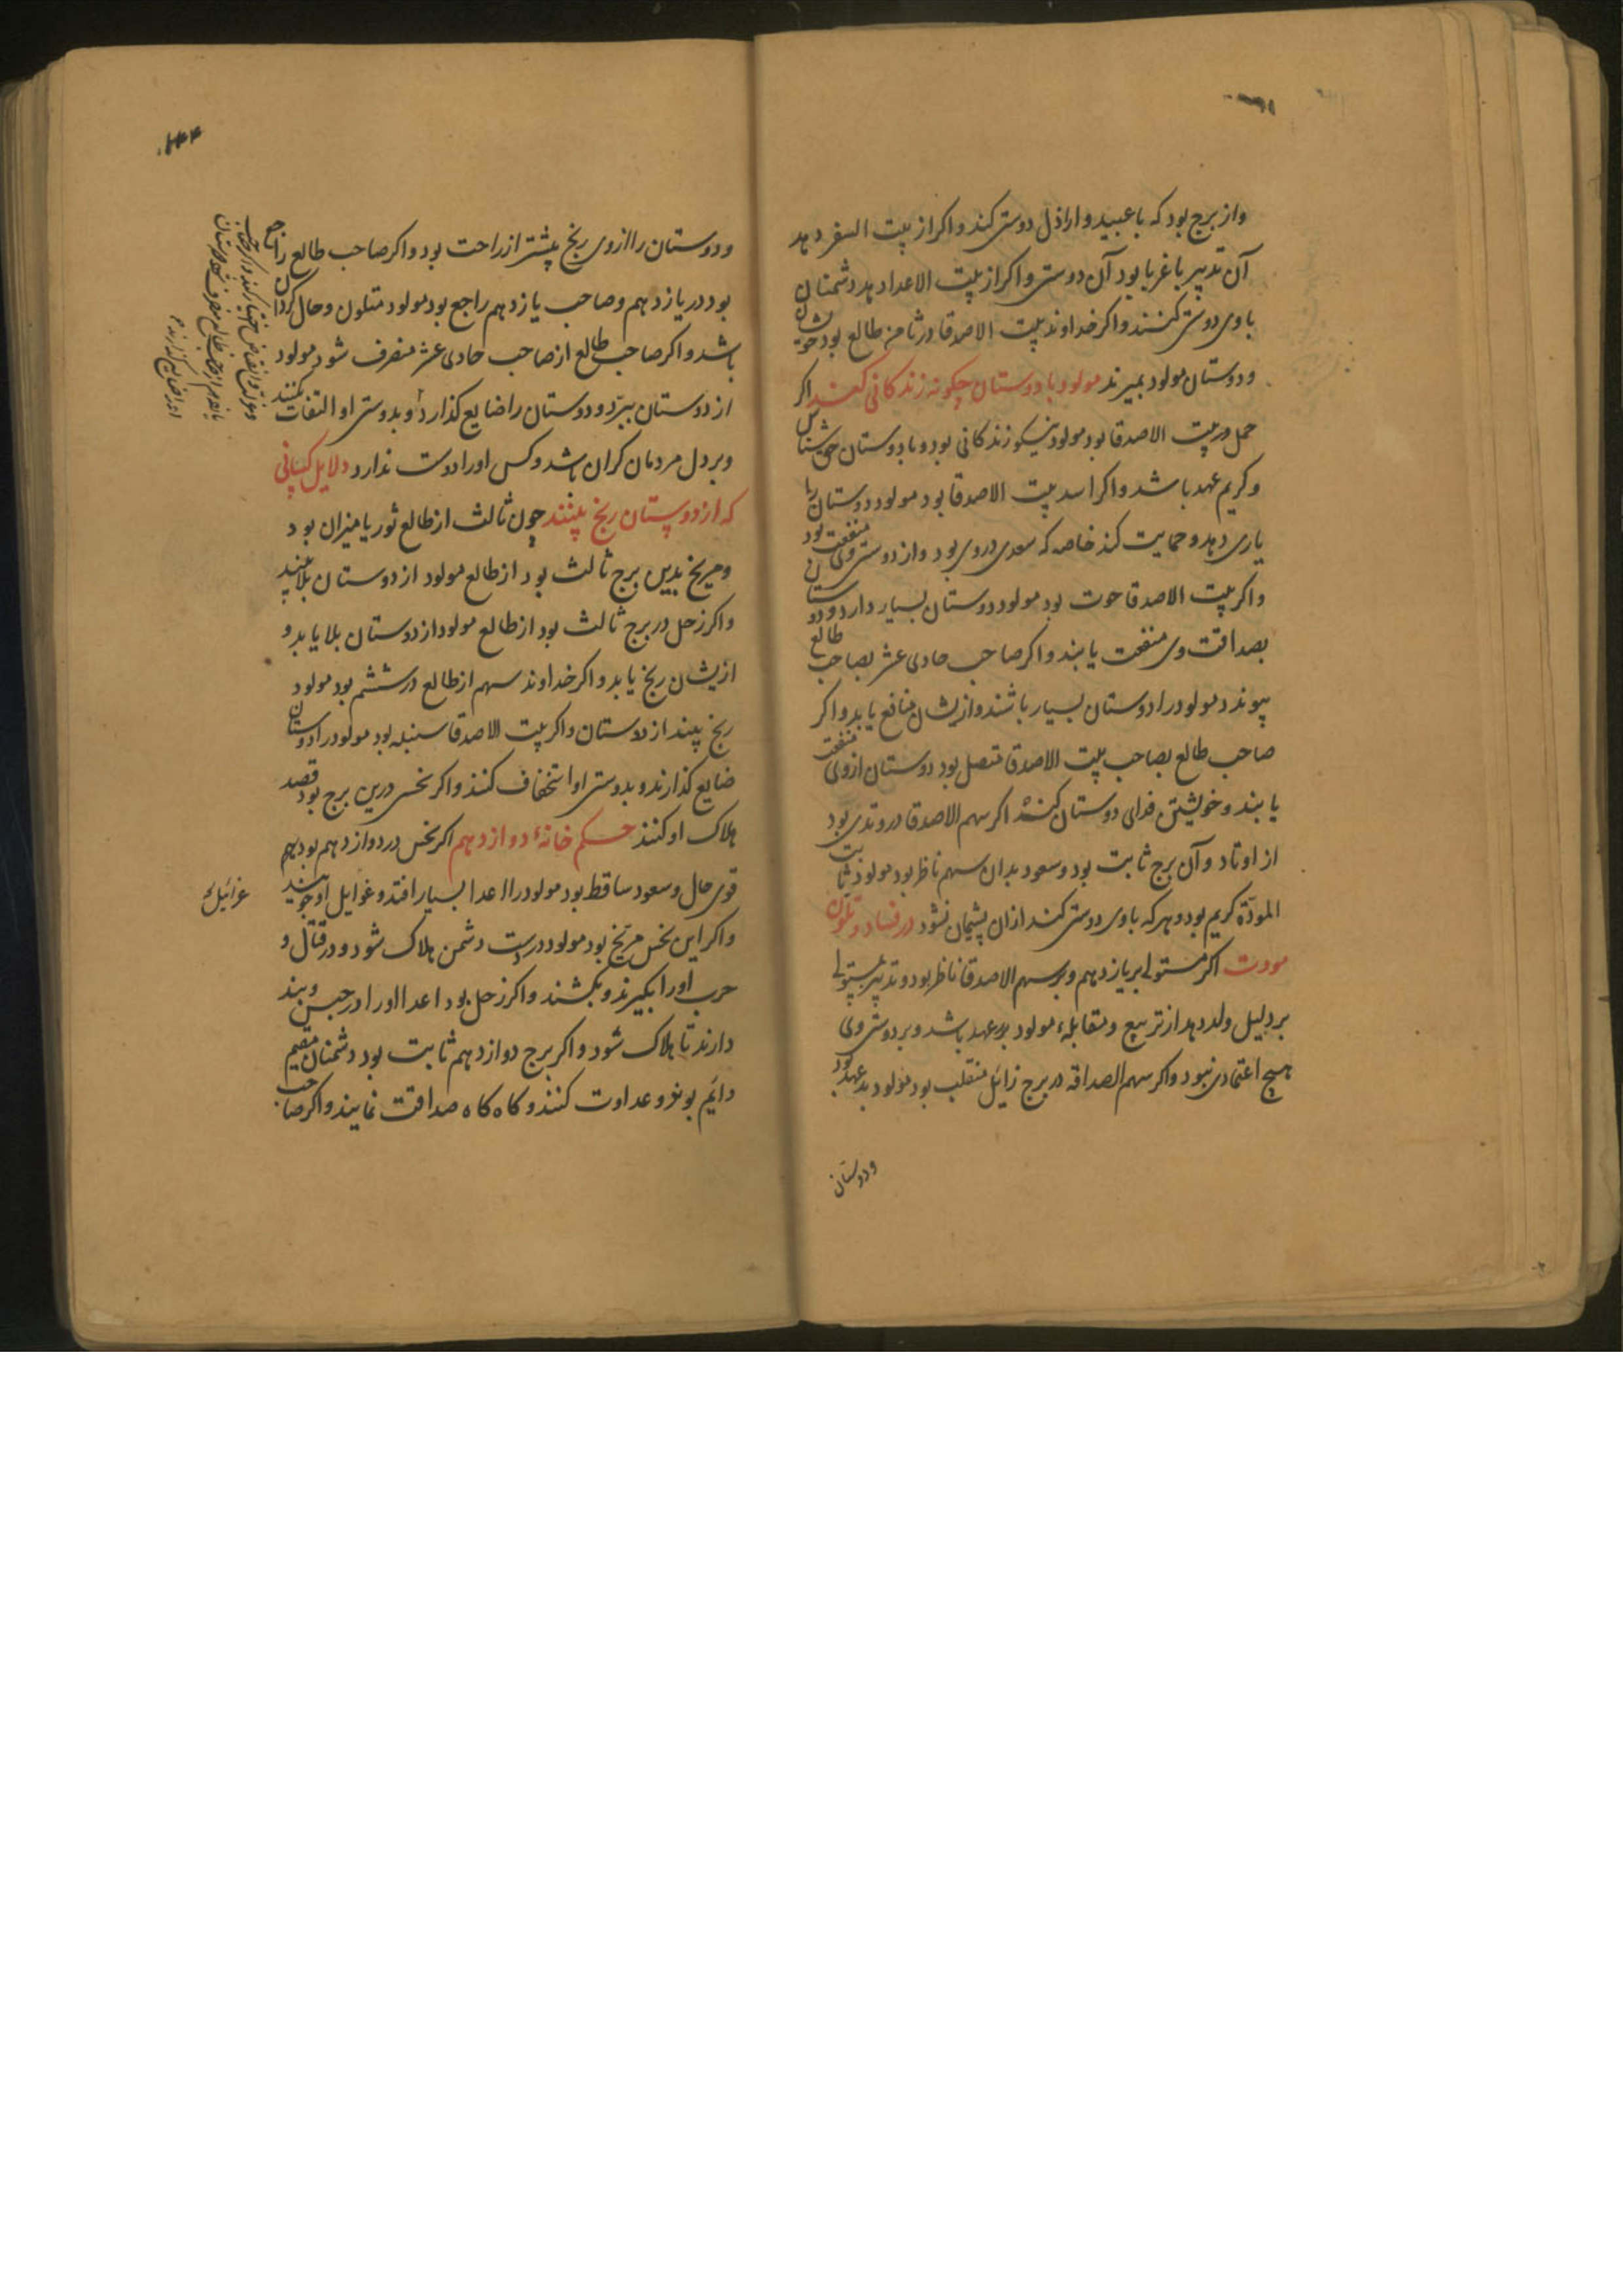 واز برج بود که با عبید و اراذل دوستی کند و اکر از بیت السفر دهد
آن تدبیر با غربا بود آن دوستی و اکر از بیت الاعدا دهد دشمنان
باوی دوستی کنند و اکر خداوند بیت الاصدقا در ثامن طالع بود خویشان
ودوستان مولود بمیرند مولود با دوستان چکونه زندکانی کند اکر
حمل در بیت الاصدقا بود مولود نیکو زندکانی بود و با دوستان حق شناس
و کریم عهد باشد و اکر اسد بیت الاصدقا بود مولود دوستان را
یاری دهد و حمایت کند خاصه که سعدی دروی بود و از دوستی وی منفعت بود
و اکر بیت الاصدقا حوت بود مولود دوستان بسیار دارد و دوستان
بصداقت وی منفعت یابند و اکر صاحب حادی عشر بصاحب طالع
پیوندد مولود را دوستان بسیار باشند و ازیشان منافع یابد و اکر
صاحب طالع بصاحب بیت الاصدقا متصل بود دوستان ازوی منفعت
یابند و خویشتن فدای دوستان کند اکر سهم الاصدقا در وتدی بود
از اوتاد و آن برج ثابت بود و سعود بدان سهم ناظر بود مولود ثابت
المودة کریم بود و هر که باوی دوستی کند ازان پشیمان نشود در فساد و تلون
مودت اکر مستولی بر یازدهم و بر سهم الاصدقا ناظر بود و تدبیر مستولی
بر دلیل ولد دهد از تربیع و مقابله مولود بدعهد باشد و بر دوستی وی
هیچ اعتمادی نبود و اکر سهم الصداقه در برج زایل منقلب بود مولود بدعهد بود
ودوستان
۱۴۴
ودوستان را ازوی رنج بیشتر از راحت بود و اکر صاحب طالع راجع
بود در یازدهم و صاحب یازدهم راجع بود مولود متلون و حال کردان
باشد و اکر صاحب طالع از صاحب حادی عشر منصرف شود مولود
از دوستان ببرد و دوستان را ضایع کذارد و بدوستی او التفات نکنند
و بر دل مردمان کران باشد و کس اورا دوست ندارد دلایل کسانی
که از دوستان رنج بینند چون ثالث از طالع ثور یا میزان بود
و مریخ بدین برج ثالث بود از طالع مولود از دوستان بلا بیند
و اکر زحل در برج ثالث بود از طالع مولود از دوستان بلا یابد و
ازیشان رنج یابد و اکر خداوند سهم از طالع در ششم بود مولود
رنج بیند از دوستان و اکر بیت الاصدقا سنبله بود مولود را دوستان
ضایع کذارند و بدوستی او استخفاف کنند و اکر نحس درین برج بود قصد
هلاک او کنند حکم خانهٔ دوازدهم اکر نحس در دوازدهم بود بهم
قوی حال و سعود ساقط بود مولود را اعدا بسیار افتد و غوایل او جویند
و اکر این نحس مریخ بود مولود در دست دشمن هلاک شود و در قتال و
حرب اورا بکیرند و بکشند و اکر زحل بود اعدا اورا در حبس و بند
دارند تا هلاک شود و اکر برج دوازدهم ثابت بود دشمنان مقیم
دایم بوند و عداوت کنند و کاه کاه صداقت نمایند و اکر صاحب